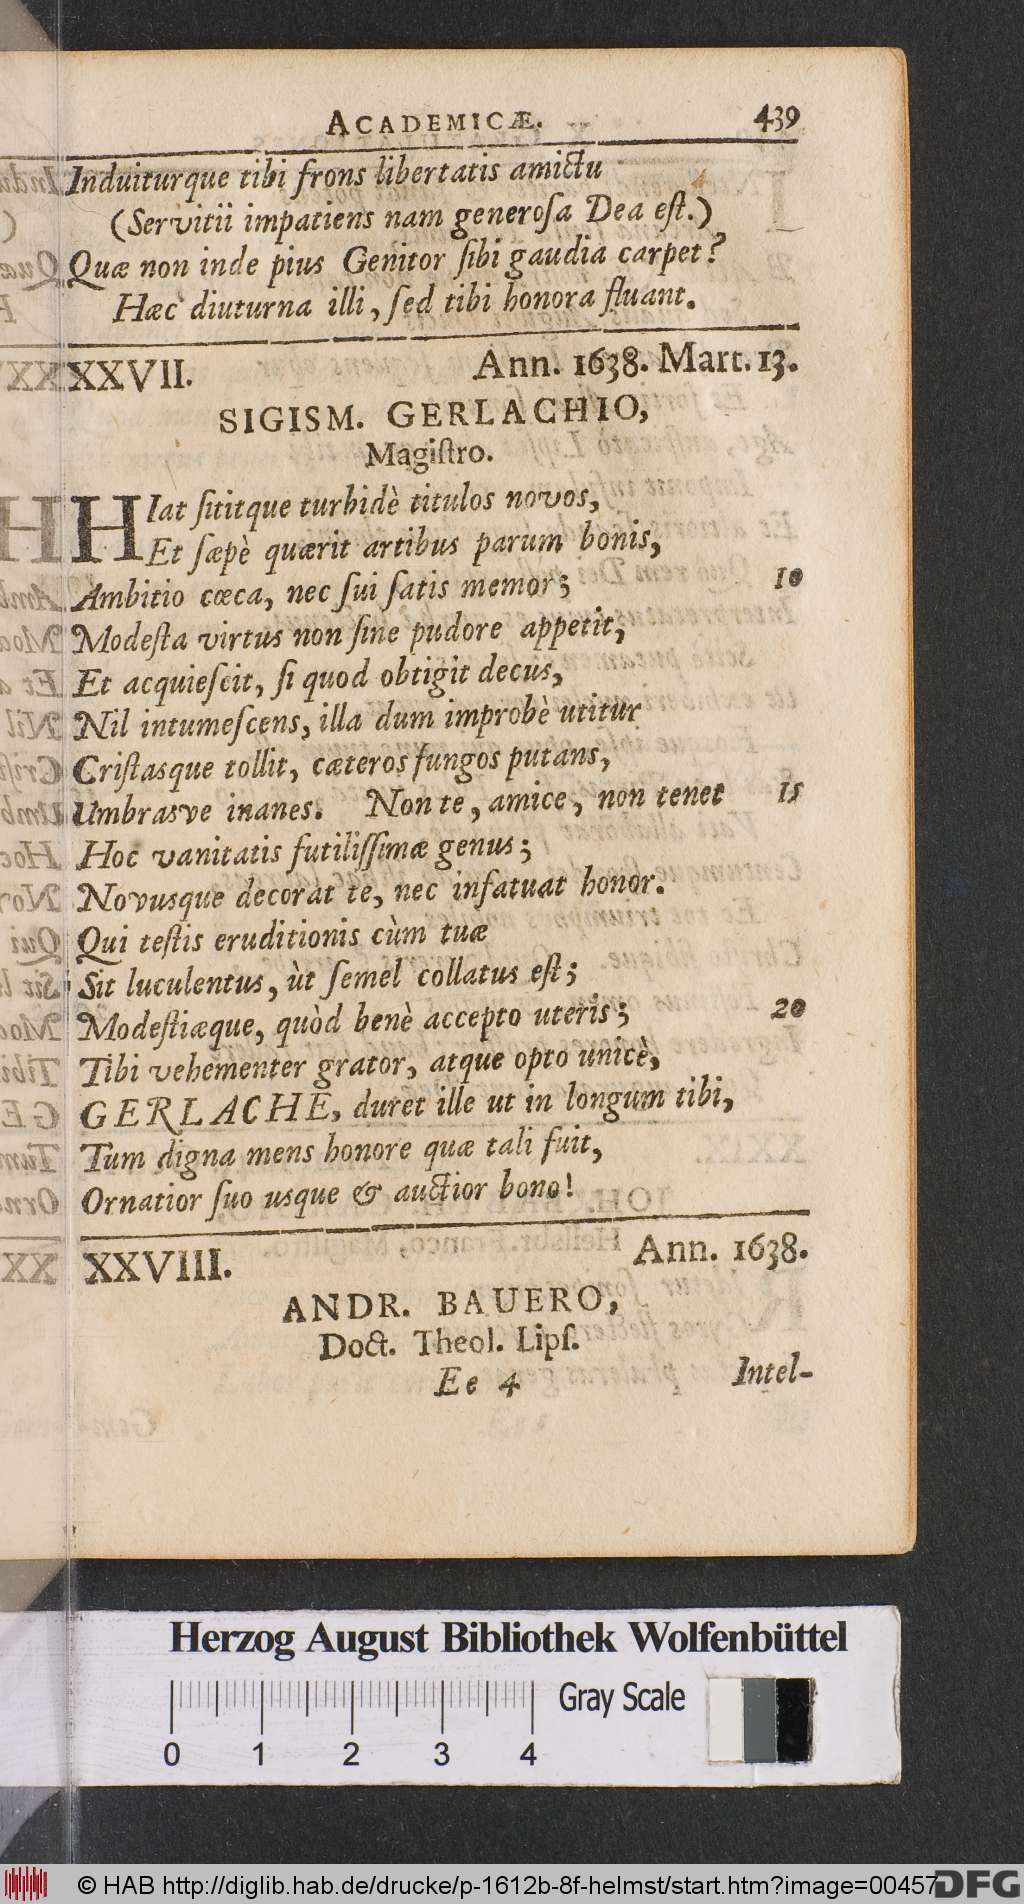 ACADEMICÆ. 439
Induiturque tibi frons libertatis amictu
(Servitii impatiens nam generoſa Dea eſt.)
Quæ non inde pius Genitor ſibi gaudia carpet?
Hæc diuturna illi, ſed tibi honora fluant.
XXVII. Ann. 1638. Mart. 13.
SIGISM. GERLACHIO,
Magiſtro.
HIat ſititque turbidè titulos novos,
Et ſæpè quærit artibus parum bonis,
Ambitio cœca, nec ſui ſatis memor; 10
Modeſta virtus non ſine pudore appetit,
Et acquieſcit, ſi quod obtigit decus,
Nil intumeſcens, illa dum improbè utitur
Criſtasque tollit, cæteros fungos putans,
Umbrasve inanes. Non te, amice, non tenet 15
Hoc vanitatis futiliſſimæ genus;
Novusque decorat te, nec infatuat honor.
Qui teſtis eruditionis cùm tuæ
Sit luculentus, ùt ſemel collatus eſt;
Modeſtiæque, quòd benè accepto uteris; 20
Tibi vehementer grator, atque opto unicè,
GERLACHE, duret ille ut in longum tibi,
Tum digna mens honore quæ tali fuit,
Ornatior ſuo usque & auctior bono!
XXVIII. Ann. 1638.
ANDR. BAUERO,
Doct. Theol. Lipſ.
Ee 4 Intel-
Herzog August Bibliothek Wolfenbüttel
Gray Scale
0 1 2 3 4
© HAB http://diglib.hab.de/drucke/p-1612b-8f-helmst/start.htm?image=00457
DFG